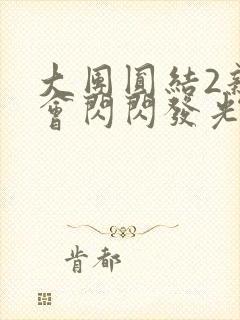 大團圓結2新
會閃閃發光
肯都